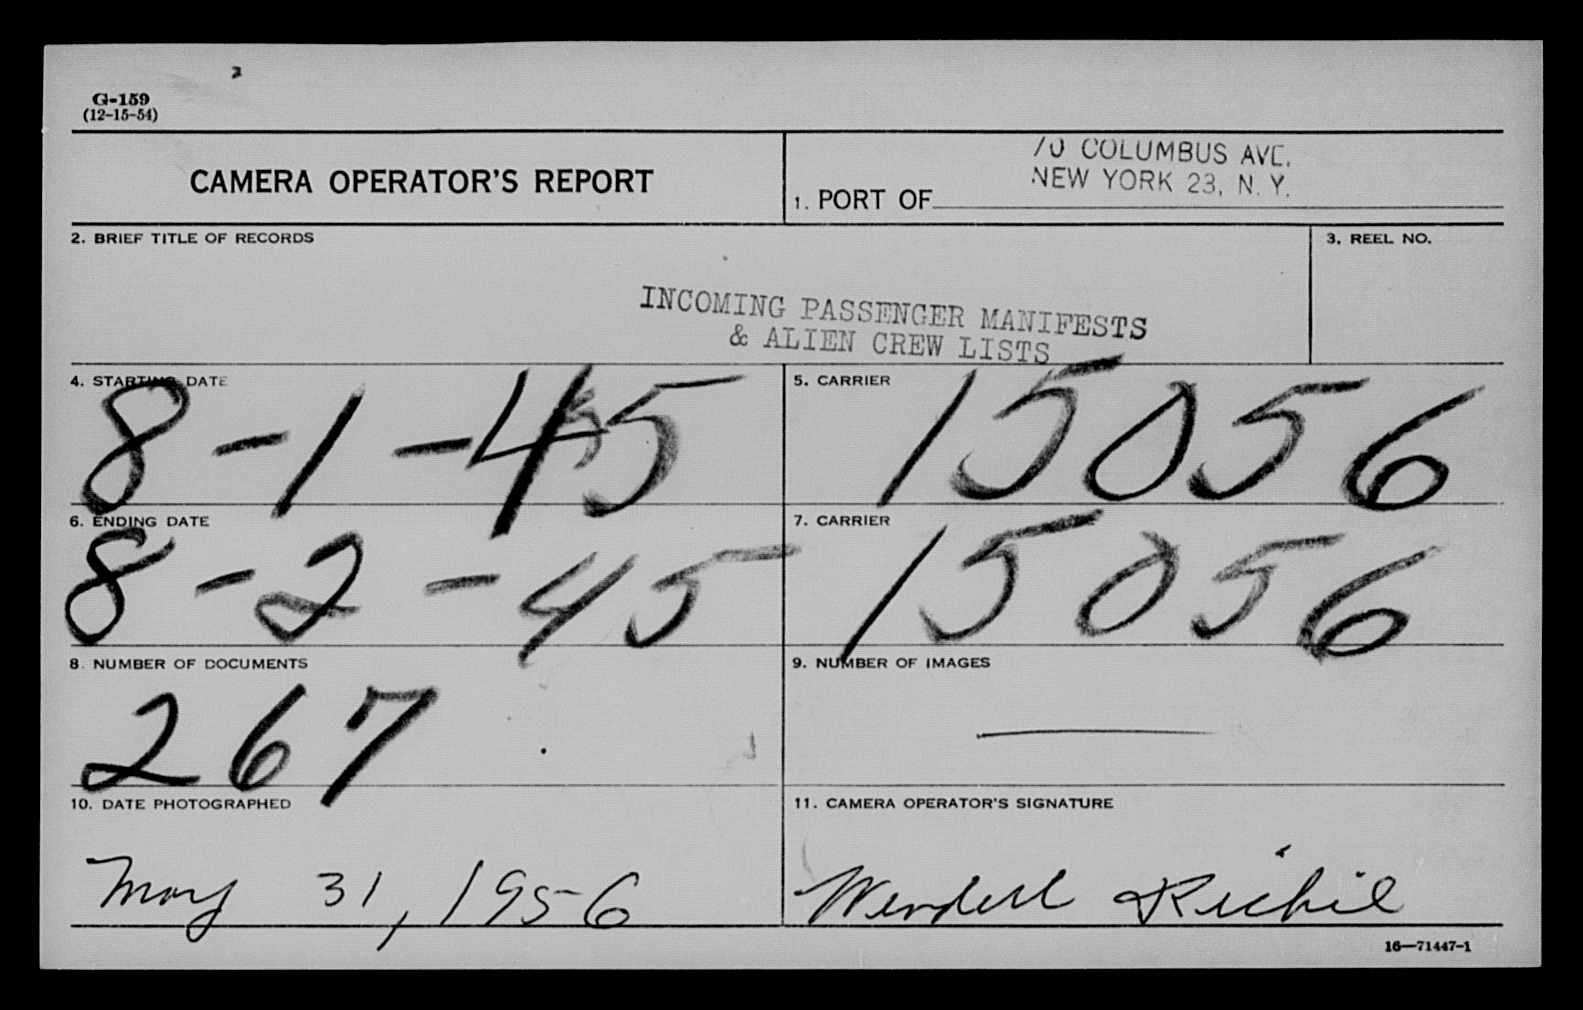 G-159
(12-15-54)
CAMERA OPERATOR'S REPORT
70 COLUMBUS AVE.
NEW YORK 23, N. Y.
1. PORT OF
2. BRIEF TITLE OF RECORDS
3. REEL NO.
INCOMING PASSENGER MANIFESTS
& ALIEN CREW LISTS
4. STARTING DATE
8-1-45
5. CARRIER
15056
6. ENDING DATE
8-2-45
7. CARRIER
15056
8. NUMBER OF DOCUMENTS
267
9. NUMBER OF IMAGES
10. DATE PHOTOGRAPHED
May 31, 1956
11. CAMERA OPERATOR'S SIGNATURE
Wendell
16—71447-1